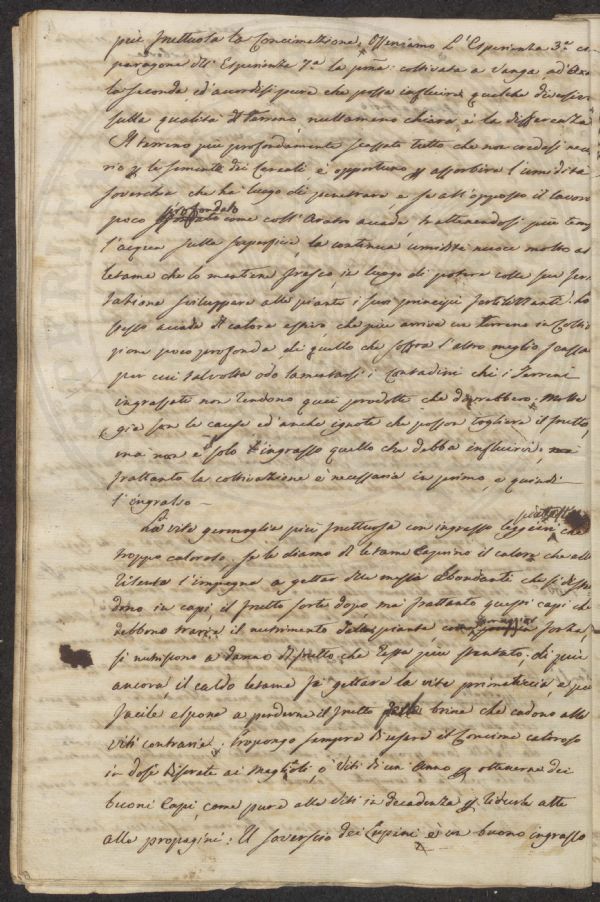 più fruttuosa la Concimazione. Osserviamo l'Esperienza 3.a co
paragone dell'Esperienza 7.a la p.ma coltivata a vanga, ad Ara
la seconda, ed'accordisi pure che possa influirvi qualche diversi
sulla qualità di terreno, nullameno chiara è la differenza
Il terreno più profondamente scassato tutto che non credasi nec
rio p le semente dei Cereali è opportuno p assorbire l'umidità
soverchia che ha luogo di penetrare e se all'opposto il lavoro
poco profondato come coll'Aratro accade, trattenendosi più temp
l'acqua sulla superficie, la continua umidità nuoce molto al
letame che lo mantiene fresco, in luogo di potere colla sua fer
tazione sviluppare alle piante i suoi principi fertilizzanti. Lo
stesso accade di calore estivo che più arriva un terreno in Colti
zione poco profonda di quello che soffra l'altro meglio scassa
per cui talvolta odo lamentarsi i Contadini che i Terreni
ingrassati non rendono quei prodotti che dovrebbero. Molte
già son le cause ed'anche ignote che posson togliere il frutto,
ma non è solo l'ingrasso quello che debba influirvi,
frattanto la coltivazione è necessaria in primo, e quindi
l'ingrasso —
La vite germoglia più fruttuosa con ingrasso leggieri piuttosto che
troppo caloroso. Se le diamo di letame Caprino il calore che all
risenta l'impegna a gettar delle messe abondanti che si disp
dono in capi, il frutto sorte dopo ma frattanto questi capi che
debbono trarre il nutrimento dalla pianta, maggior forza,
si nutriscono a danno di frutto che resta più stentato; di più
ancora, il caldo letame fa gettare la vite primaticcia, e più
facile espone a perderne il frutto brine che cadono alle
viti contrarie. Propongo sempre di usare il Concime caloroso
in dose disparate ai Maglioli, o viti di un'Anno p ottenerne dei
buoni Capi, come pure alle viti in decadenza p ridurle atte
alle propagini: Il soverscio dei Lupini è un buono ingrasso